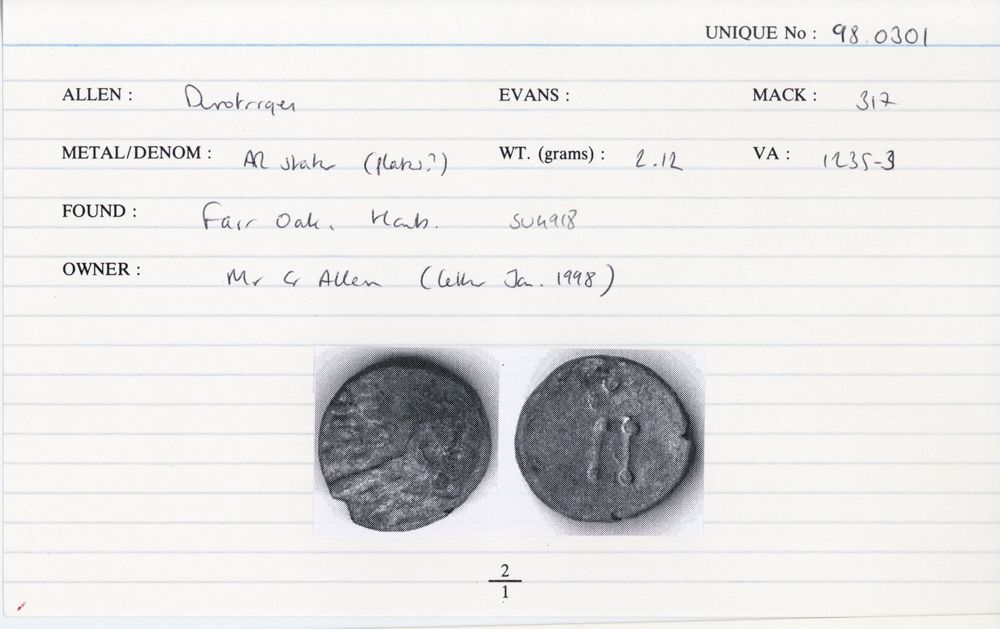 UNIQUE No : 98.0301
ALLEN : Durotriges EVANS : MACK : 317
METAL/DENOM : AR stater (plated?) WT. (grams) : 2.12 VA : 1235-3
FOUND : Fair Oak, Hants. SU4918
OWNER : Mr G Allen (letter Jan. 1998)
2
1